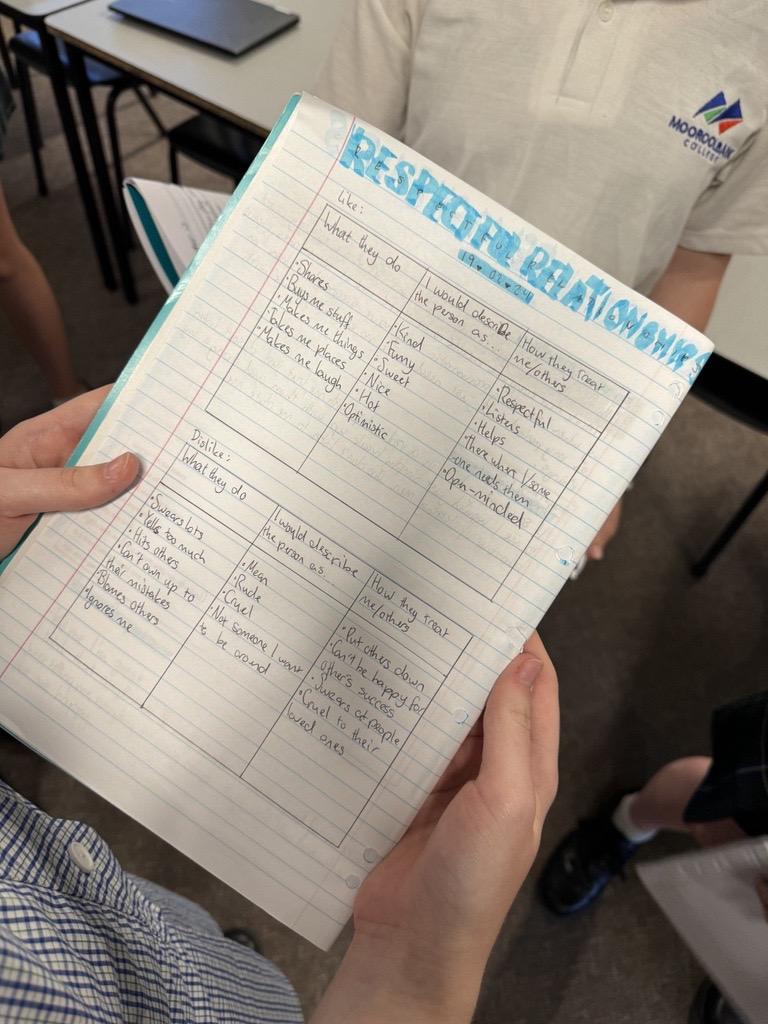 MOOROOLBARK
COLLEGE
RESPECTFUL RELATIONSHIPS
19.02.24
Like:
What they do
I would describe
the person as...
How they treat
me/others
• Shares
• Buys me stuff
• Makes me things
• Takes me places
• Makes me laugh
• Kind
• Funny
• Sweet
• Nice
• Hot
• Optimistic
• Respectful
• Listens
• Helps
• There when I/some
one needs them
• Open-minded
Dislike:
What they do
I would describe
the person as...
How they treat
me/others
• Swears lots
• Yells too much
• Hits others
• Can't own up to
their mistakes
• Blames others
• Ignores me
• Mean
• Rude
• Cruel
• Not someone I want
to be around
• Put others down
• Can't be happy for
other's success
• Swears at people
• Cruel to their
loved ones